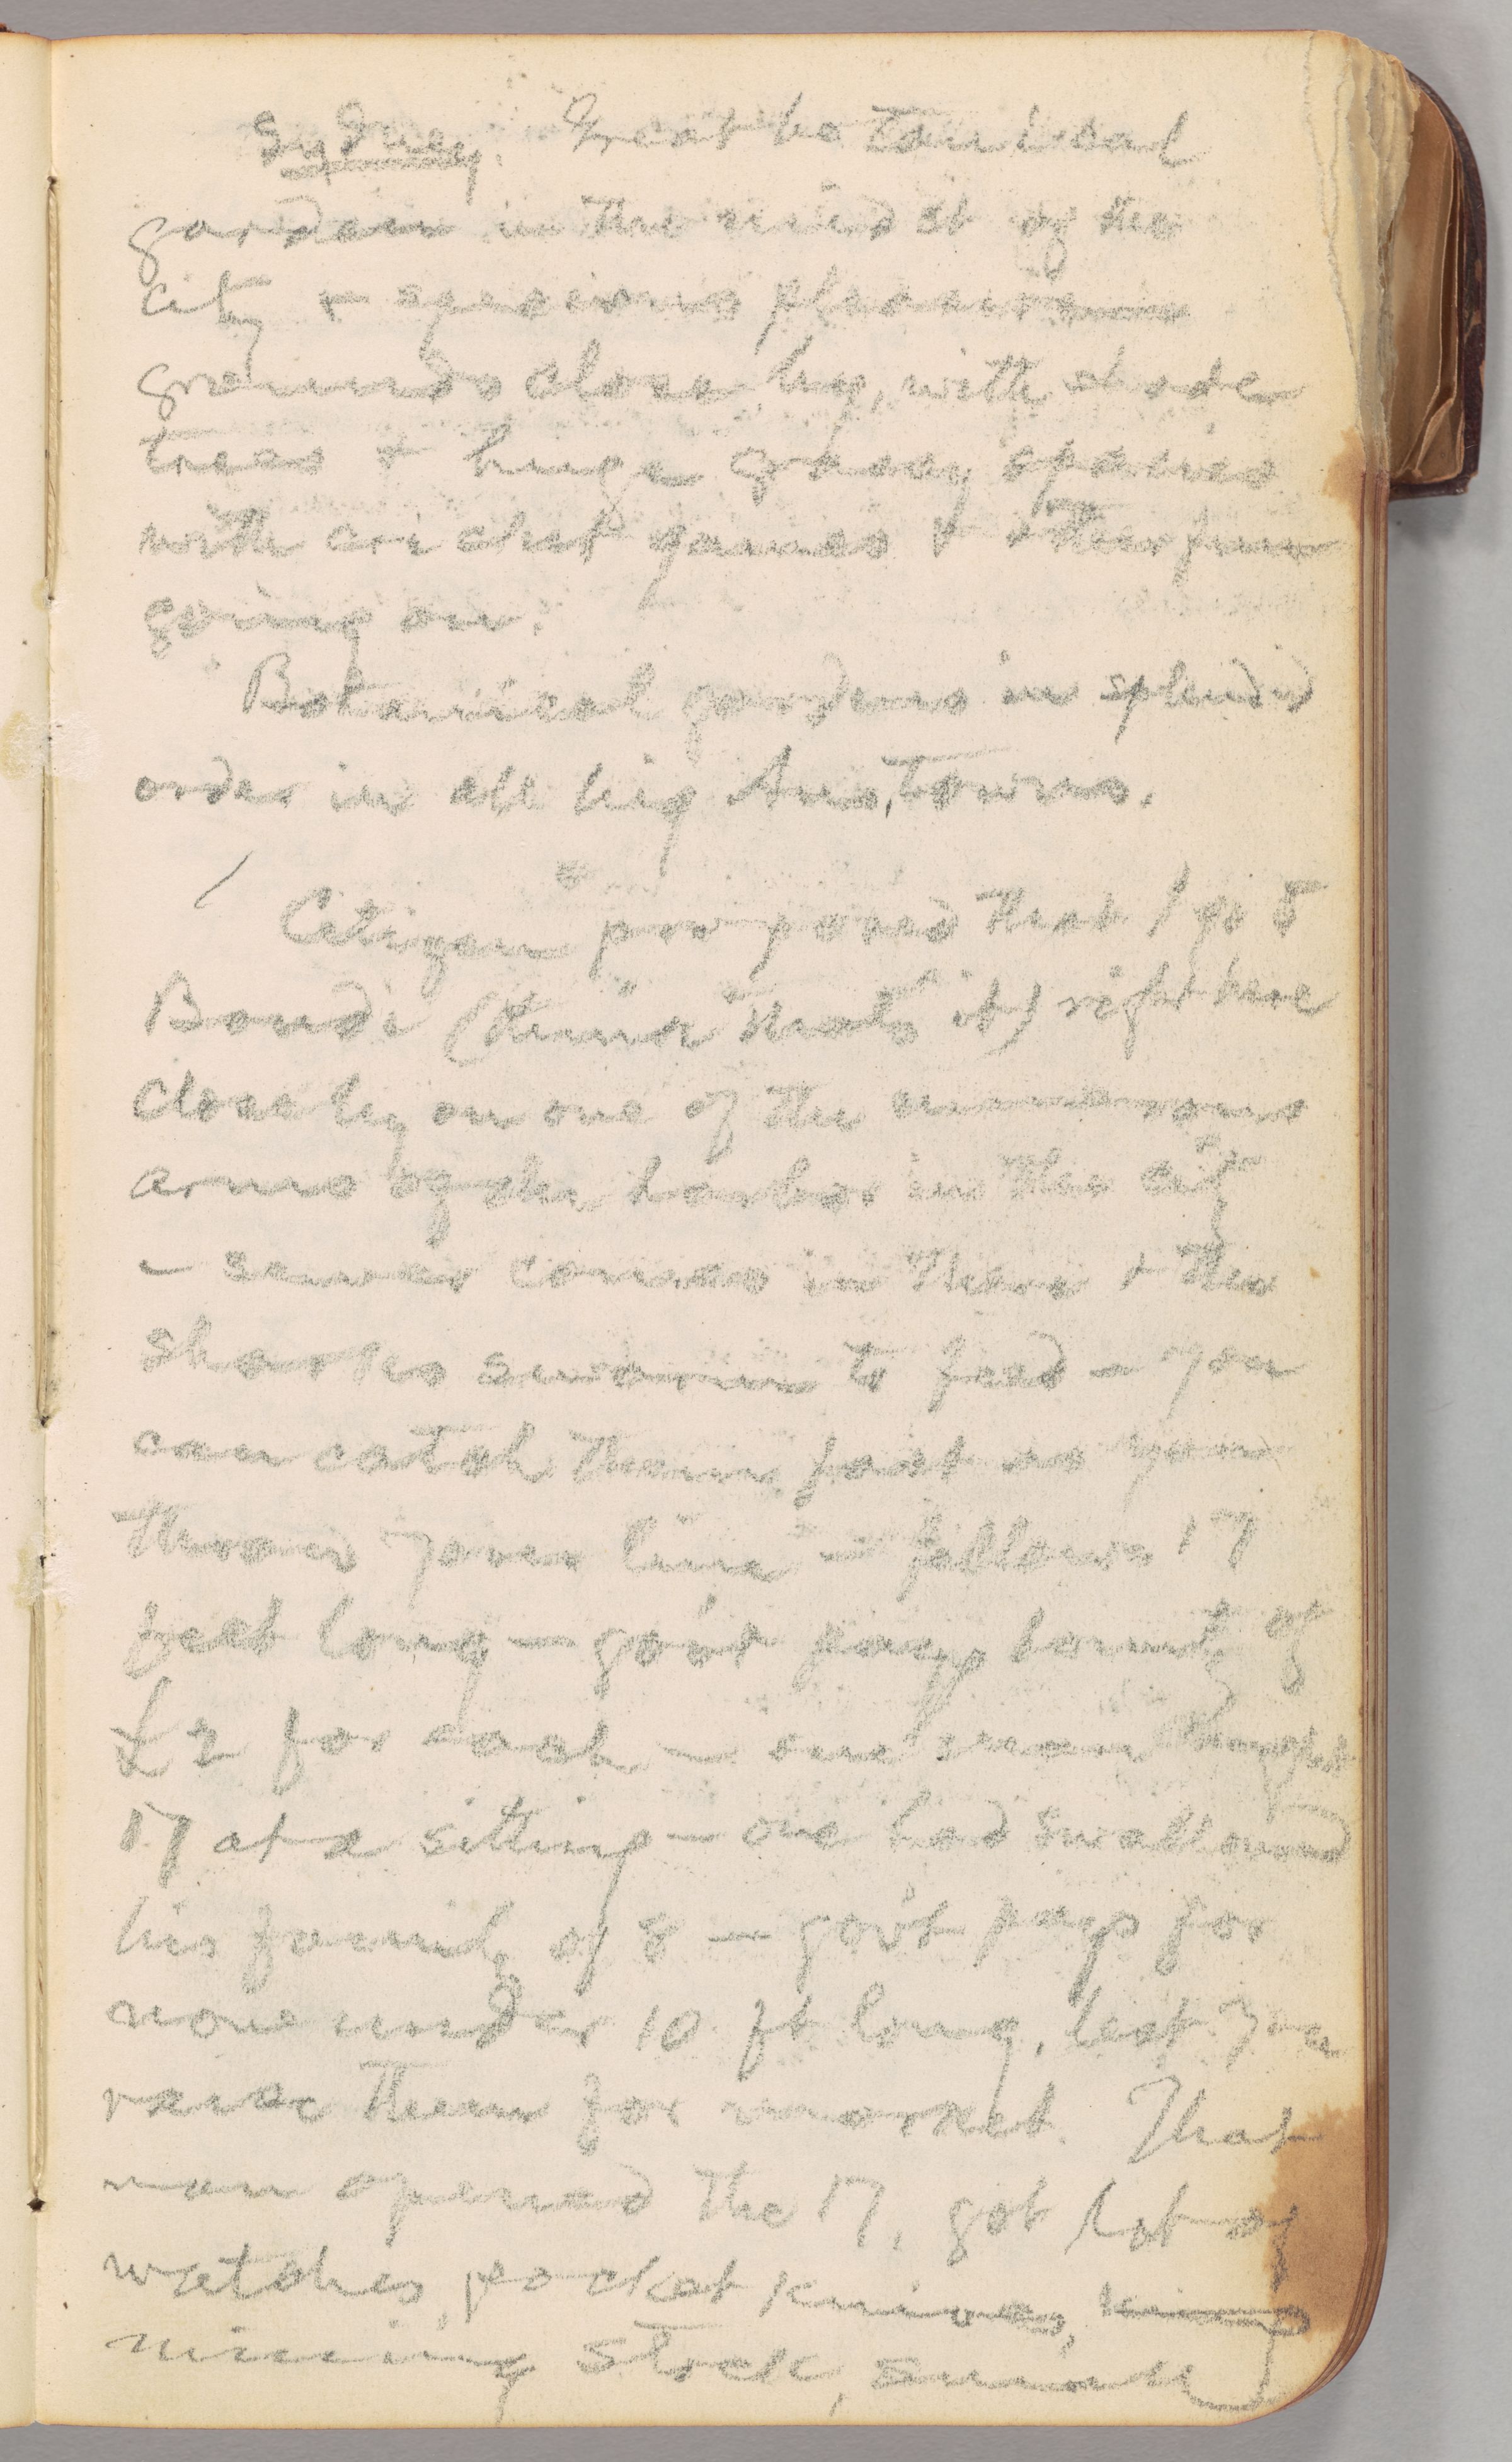 Sydney. Great botanical
garden in the midst of the
city & spacious pleasure
grounds close by, with shade
trees & huge grassy spaces
with cricket games & other fun
going on.
Botanical gardens in splendid
order in all big Aus. towns.
Citizen proposed that I go to
Bondi (think that's it) right here
close by on one of the numerous
arms of the harbor in the city
— sewer comes in there & the
sharks swarm to feed — you
can catch them fast as you
throw your line — fellows 17
feet long — gov't pays bounty of
£2 for each — one man caught
17 at a sitting — one had swallowed
his family of 8 — gov't pays for
none under 10 ft long, lest you
raise them for market. That
man opened the 17, got lot of
watches, pocket knives,
mining stock, small